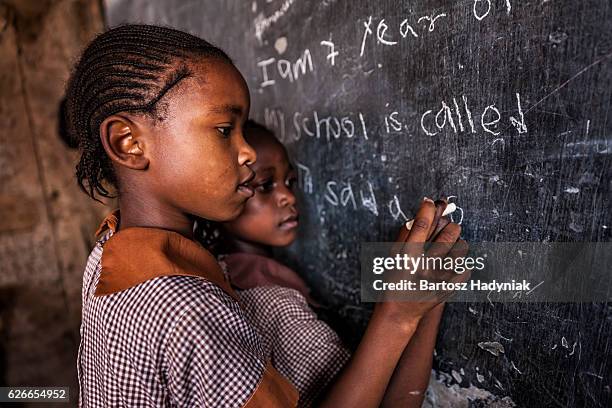 I am 7 year ol
My school is called
gettyimages
Credit: Bartosz Hadyniak
1226654952